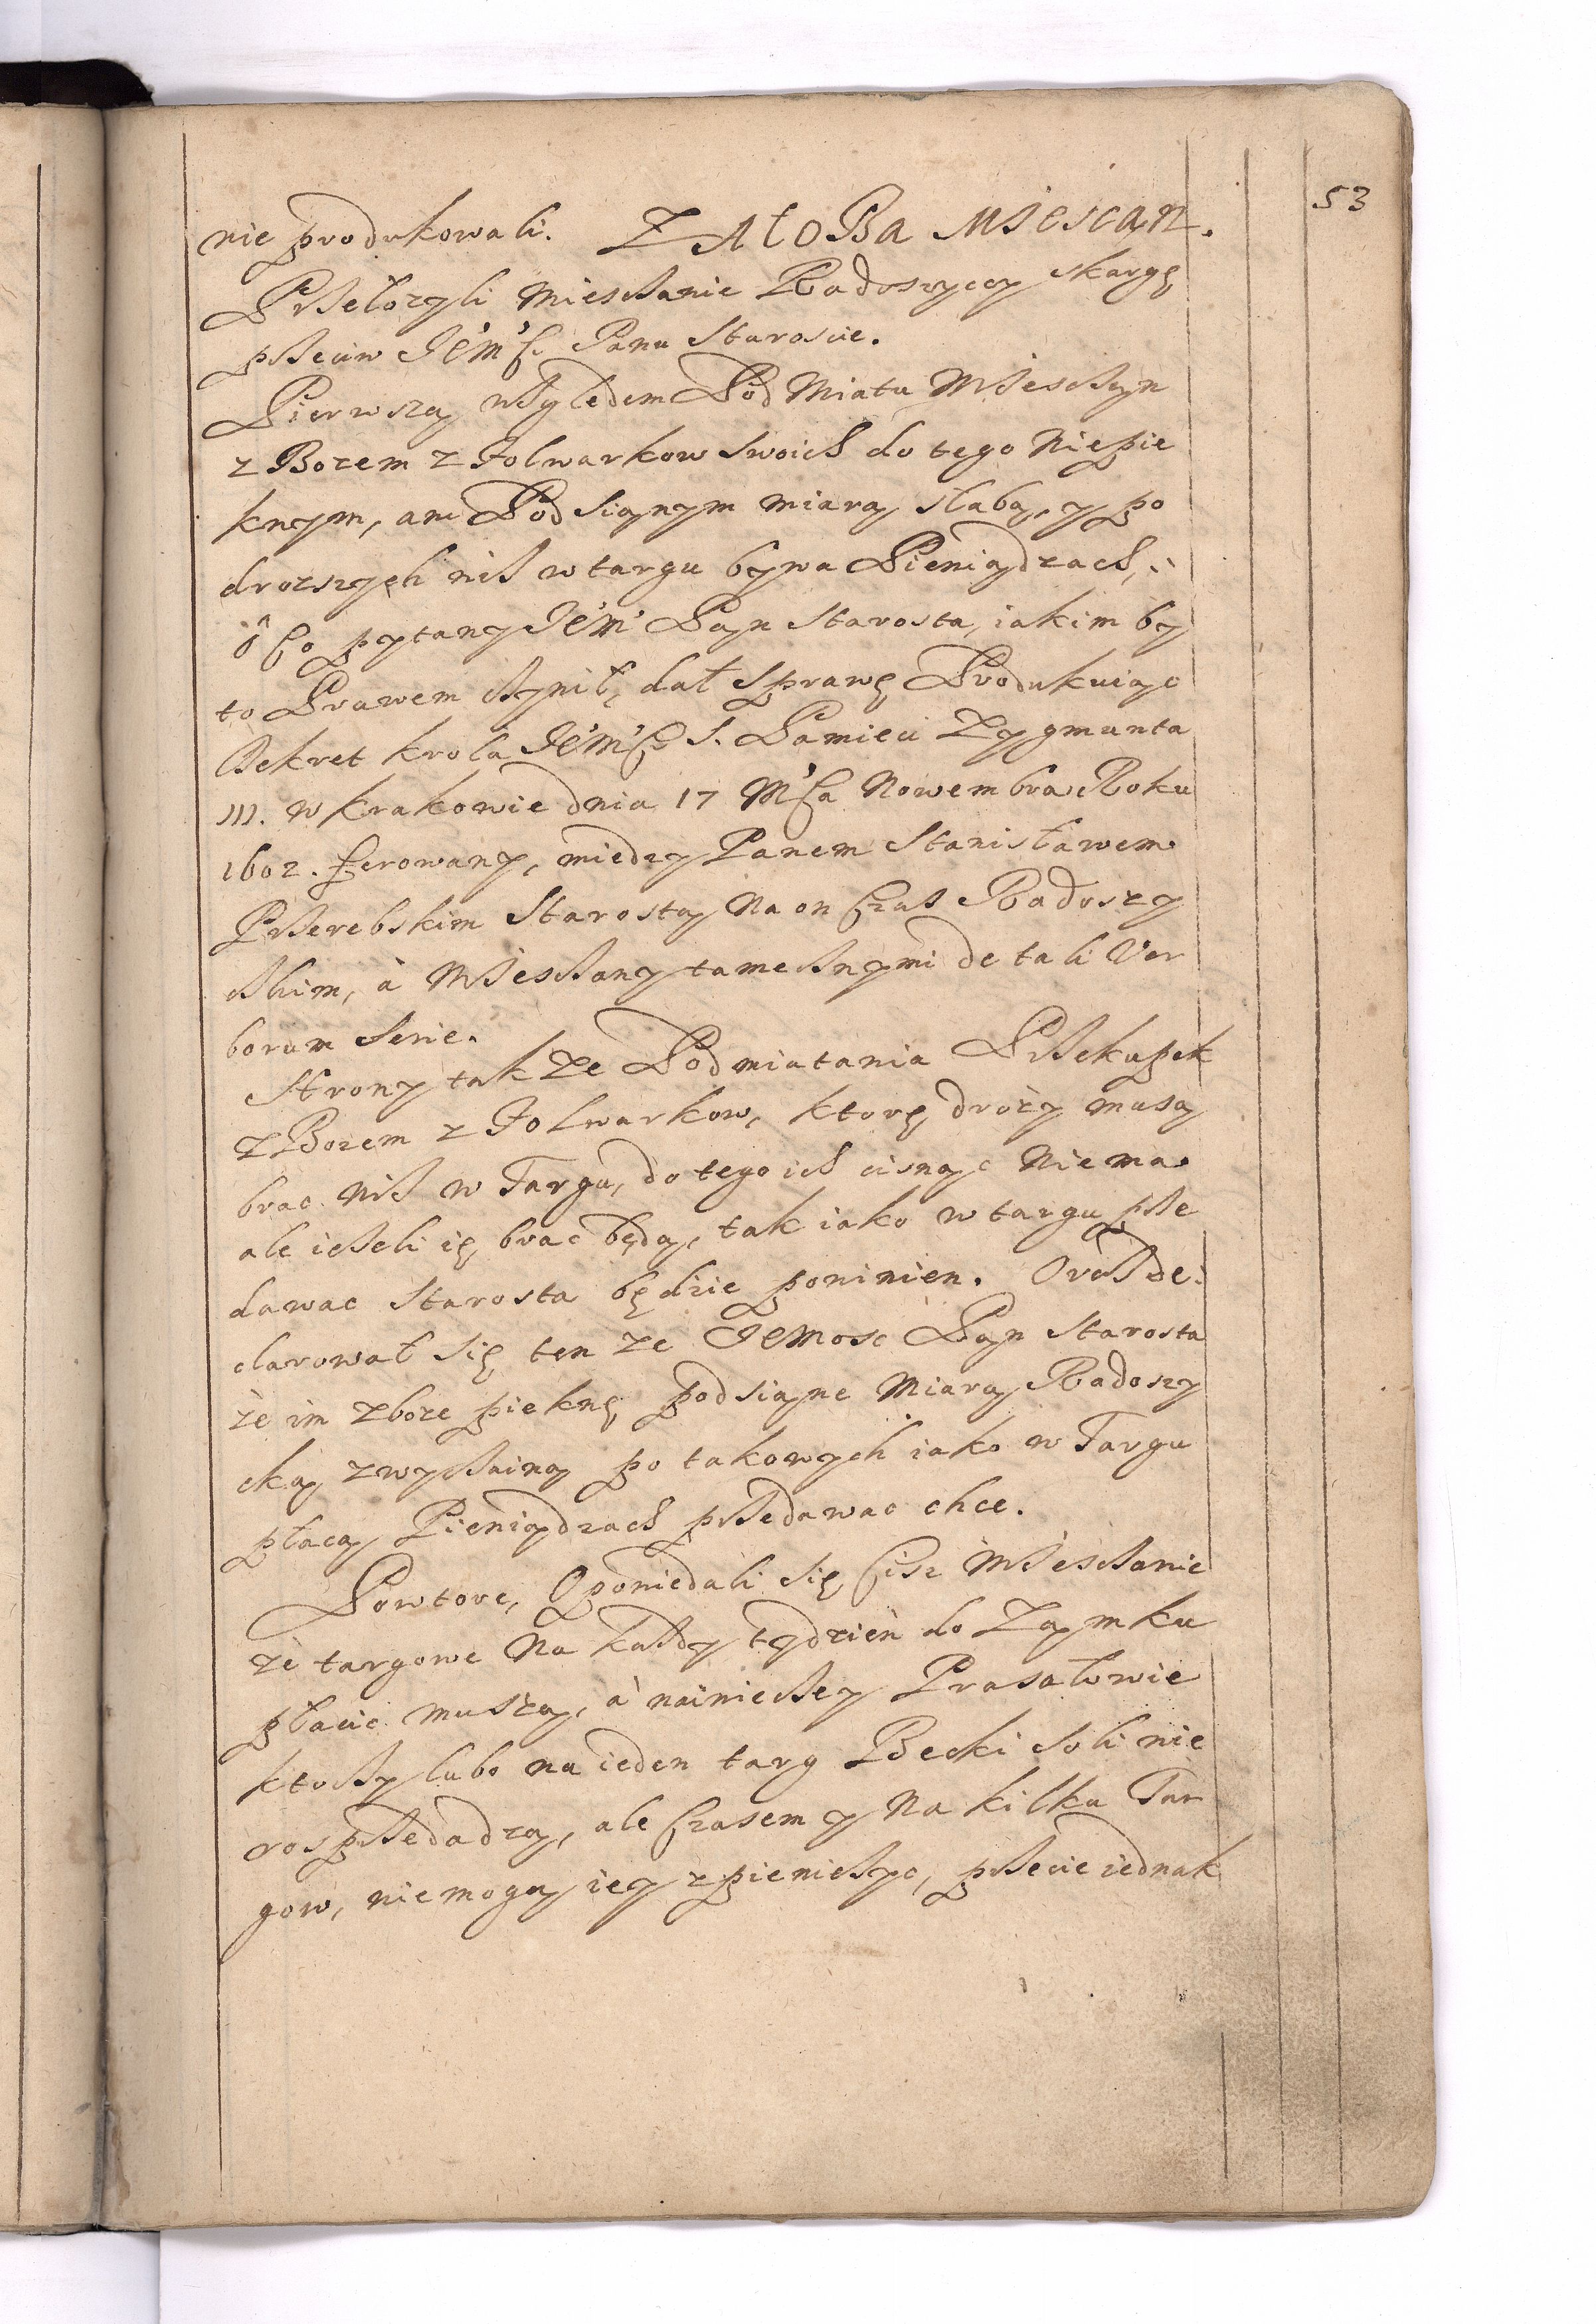 53
nie produkowali. ZAŁOBA MIESCAN.
Przełozyli Miesczanie Radoszyccy skargę
przeciw JeMści Panu Staroscie.
Pierwszą względem Pod Miatu Miesczyn
z Bozem z Folwarkow swoich do tego niepie
knym, ani Pod sianym miarą słabą, y po
drozszych niz w targu bywa Pieniądzach,
ô co pytany JeM Pan Starosta, iakim by
to Prawem czynił, dał sprawę Produkuiąc
Dekret krola JeMści S. Pamieci Zygmunta
III. w Krakowie dnia 17 Mca Nowembra Roku
1602. ferowany, miedzy Panem Stanisławem
Przerebskim Starostą na on czas Radoszy
ckim, à Miesczany tamecznymi de tali Ver
borum serie.
Strony takze Podmiatania Przekupek
z Bozem z Folwarkow, ktorę droży muszą
brac niz w Targu, do tego ich cisnąc niema
ale iezeli ię brac będą, tak iako w targu prze
dawac Starosta będzie powinien. Oraz de
clarował się ten ze JeMosc Pan Starosta
że im zboze pieknę podsiane Miarą Radoszy
cką zwyczainą po takowych iako w Targu
płacą Pieniądzach przedawac chce.
Powtore, Opowiedali się cisz Miesczanie
że targowe na kazdy tydzień do Zamku
płacic muszą, à nainieczey Prasałowie
ktorzy lubo na ieden targ Becki soli nie
rosprzedadzą, ale czasem y na kilku Tar
gow, niemogą iey zpieniezyc, przecie iednak